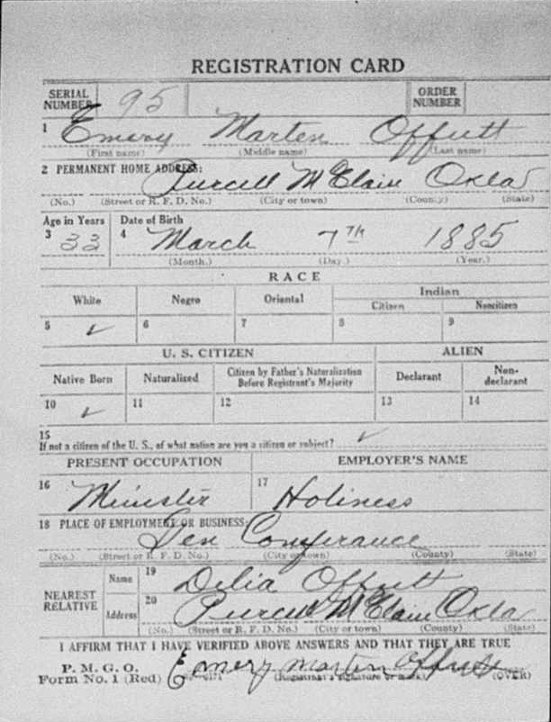 REGISTRATION CARD
SERIAL NUMBER 95 ORDER NUMBER
1 Emery Marten Offutt
(First name) (Middle name) (Last name)
2 PERMANENT HOME ADDRESS:
Purcell McClain Okla
(No.) (Street or R. F. D. No.) (City or town) (County) (State)
Age in Years Date of Birth
3 33 4 March 7th 1885
(Month.) (Day.) (Year.)
RACE
White Negro Oriental Indian
Citizen Noncitizen
5 ✓ 6 7 8 9
U. S. CITIZEN ALIEN
Native Born Naturalized Citizen by Father's Naturalization Before Registrant's Majority Declarant Non-declarant
10 ✓ 11 12 13 14
15 ✓
If not a citizen of the U. S., of what nation are you a citizen or subject?
PRESENT OCCUPATION EMPLOYER'S NAME
16 Minister 17 Holiness
18 PLACE OF EMPLOYMENT OR BUSINESS:
Gen Conferance
(No.) (Street or R. F. D. No.) (City or town) (County) (State)
NEAREST RELATIVE Name 19 Delia Offutt
Address 20 Purcell McClain Okla
(No.) (Street or R. F. D. No.) (City or town) (County) (State)
I AFFIRM THAT I HAVE VERIFIED ABOVE ANSWERS AND THAT THEY ARE TRUE
P. M. G. O.
Form No. 1 (Red) Emery Marten Offutt
(Registrant's signature or mark) (OVER)